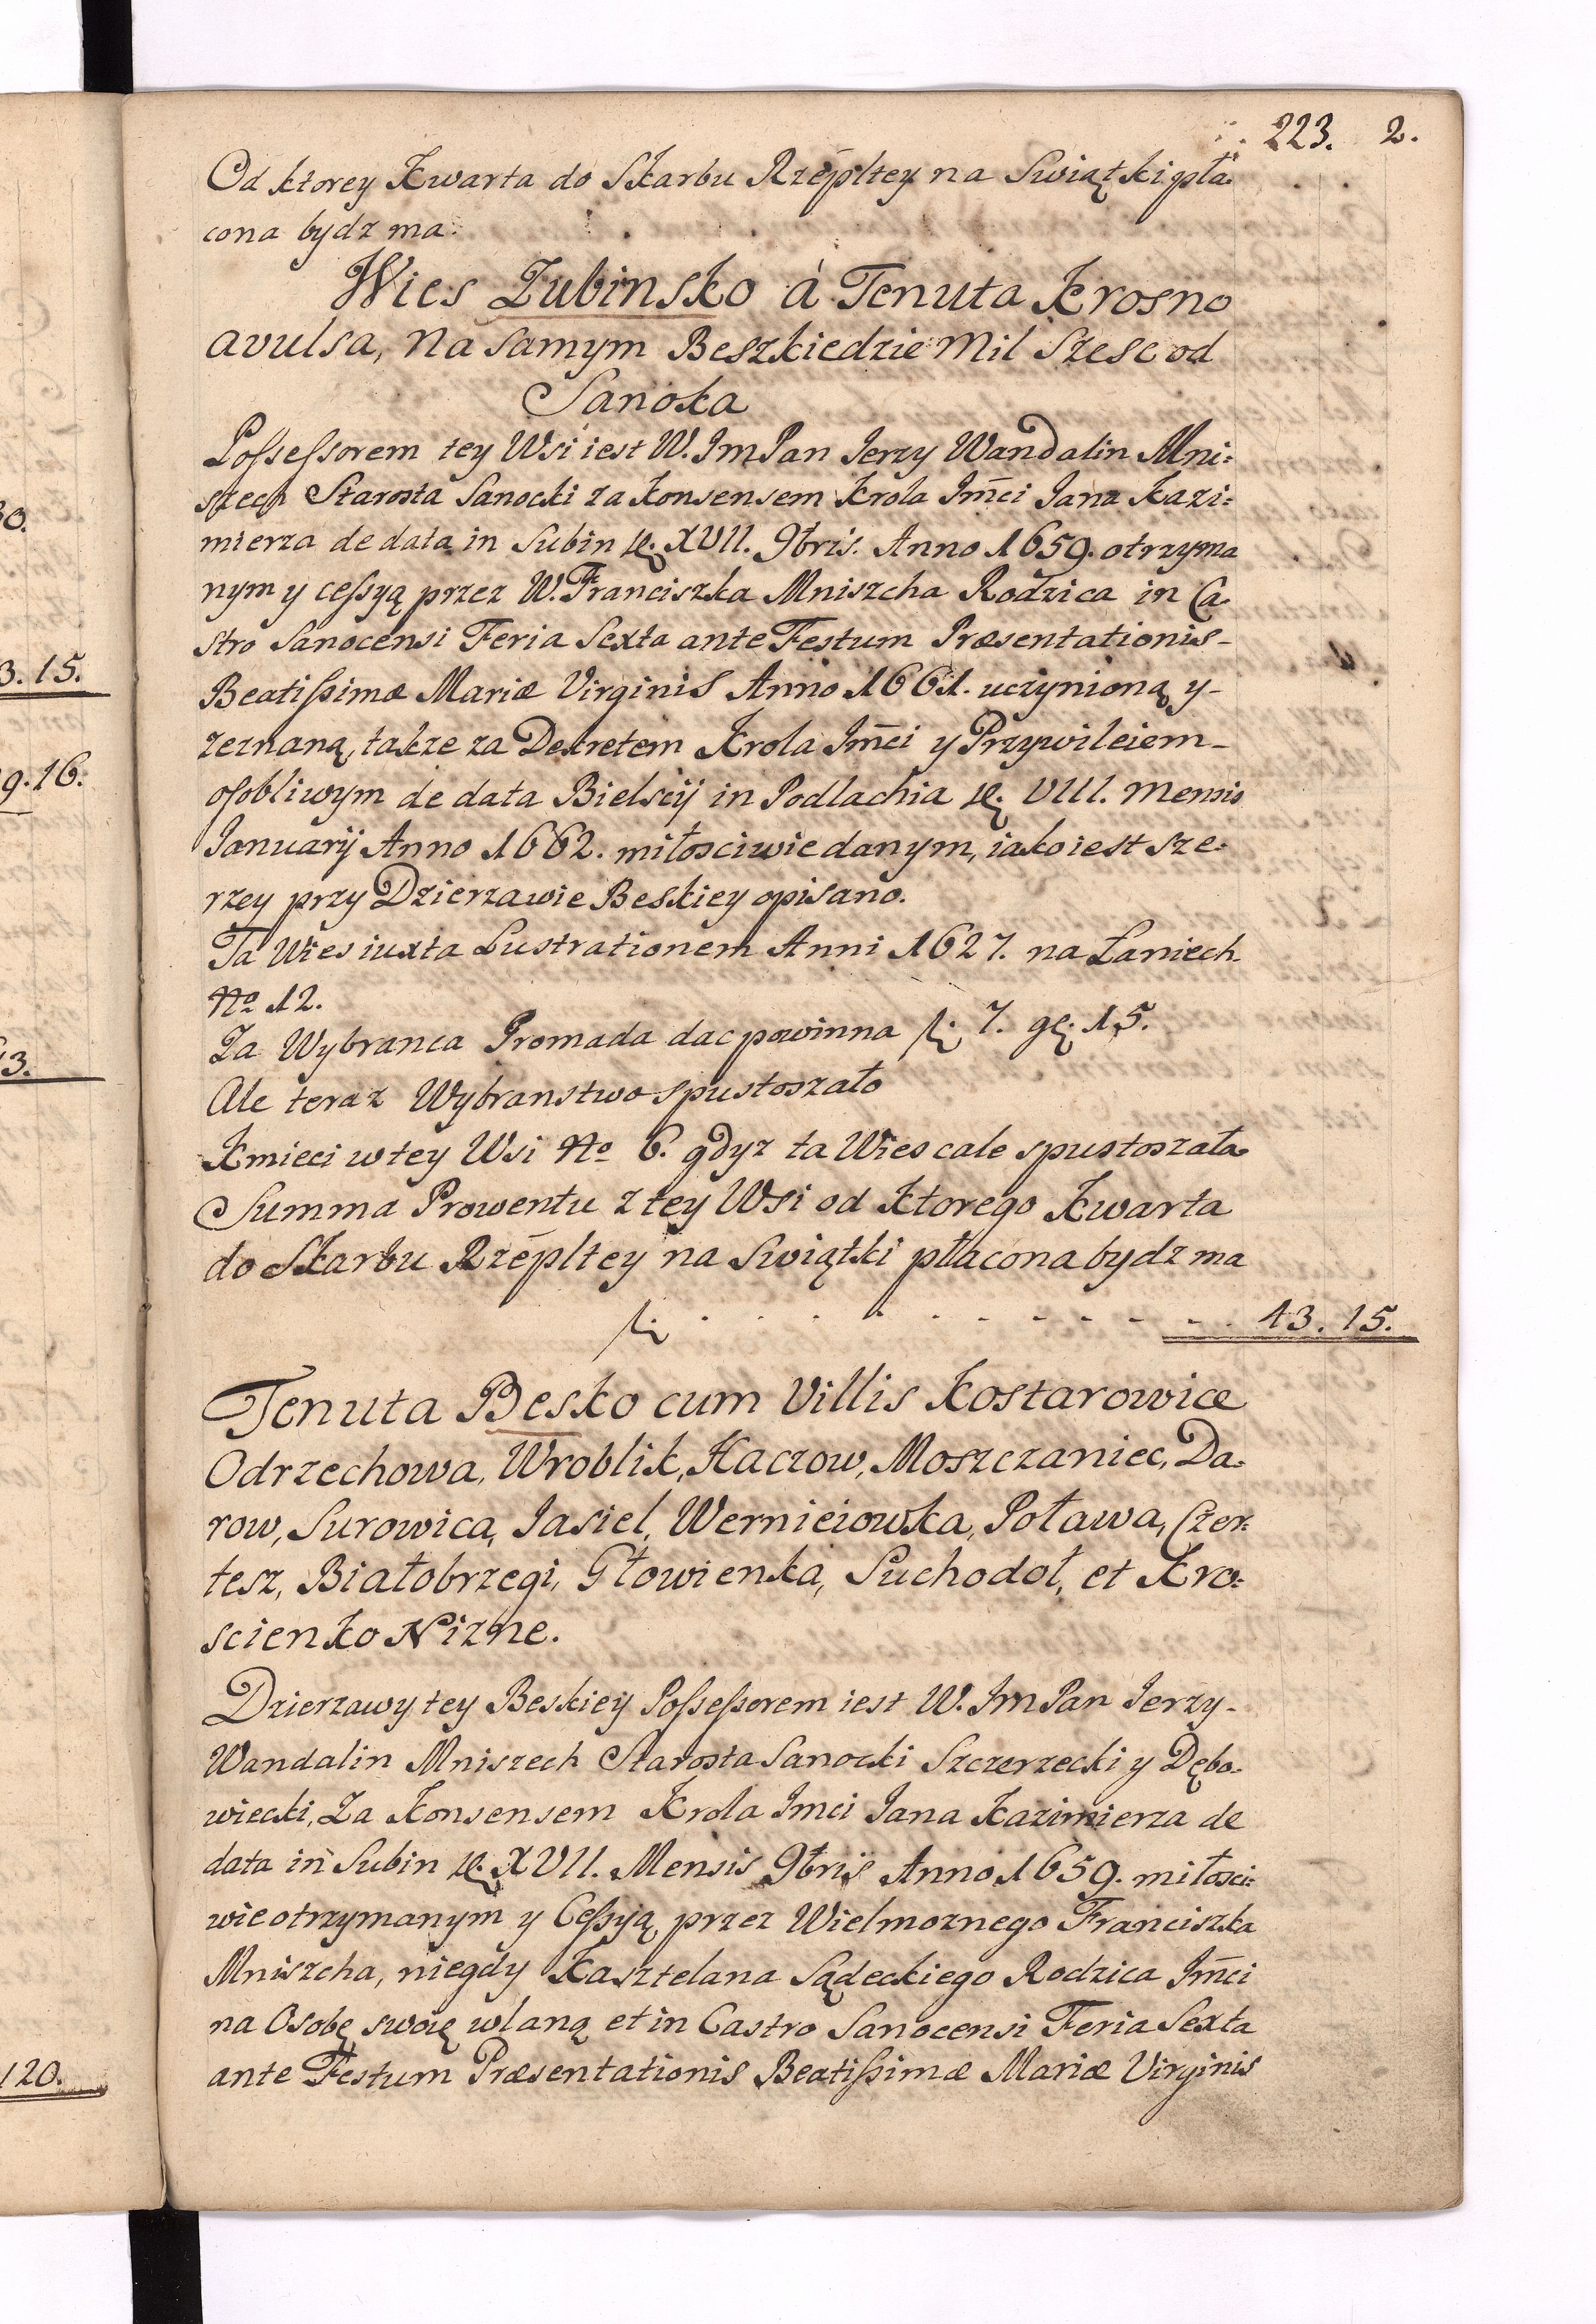 223. 2.
Od ktorey Kwarta do Skarbu Rzépltey na Swiątki pła:
cona bydz ma.
Wies Zubinsko à Tenuta Krosno
avulsa, na samym Beszkiedzie Mil Szesc od
Sanoka
Possessorem tey Wsi iest W. Im Pan Ierzy Wandalin Mni:
szech Starosta Sanocki za Konsensem Krola Im̃ci Iana Kazi:
mierza de data in Lubin XVII. 9bris. Anno 1659. otrzyma
nym y cessyą przez W. Franciszka Mniszcha Rodzica in Ca:
stro Sanocensi Feria Sexta ante Festum Præsentationis-
Beatissimæ Mariæ Virginis Anno 1661. uczynioną y-
zeznaną, takze za Dekretem Krola Im̃ci y Przywileiem-
osobliwym de data Bielscij in Podlachia VIII. Mensis
Ianuarij Anno 1662. miłosciwie danym, iako iest sze:
rzey przy Dzierzawie Beskiey opisano.
Ta Wies iuxta Lustrationem Anni 1627. na Laniech
No 12.
Za Wybranca Gromada dac powinna f. 7. g. 15.
Ale teraz Wybranstwo spustoszało
Kmieci w tey Wsi No 6. gdyz ta Wies cale spustoszała
Summa Prowentu z tey Wsi od Ktorego Kwarta
do Skarbu Rzépltey na Swiątki płacona bydz ma
f. . . . . . - - - - - . 43. 15.
Tenuta Besko cum Villis Kostarowice
Odrzechowa, Wroblik, Haczow, Moszczaniec, Da:
row, Surowica, Iasiel, Wernieiowka, Poława, Czer:
tesz, Białobrzegi, Głowienka, Suchodoł, et Kro:
scienko Nizne.
Dzierzawy tey Beskiey Possessorem iest W. Im Pan Ierzy-
Wandalin Mniszech Starosta Sanocki Szczerzecki y Dębo:
wiecki, Za Konsensem Krola Imci Iana Kazimierza de
data in Lubin XVII. Mensis 9bris Anno 1659. miłosci:
wie otrzymanym y Cessyą przez Wielmoznego Franciszka
Mniszcha, niegdy Kasztelana Sądeckiego Rodzica Im̃ci
na Osobę swoię wlaną et in Castro Sanocensi Feria Sexta
ante Festum Præsentationis Beatissimæ Mariæ Virginis
30.
3. 15.
9. 16.
3.
120.